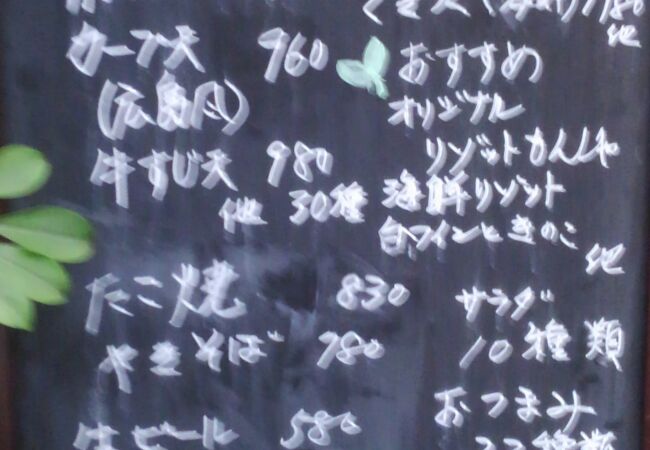 カープ天 960
(広島風)
牛すじ天 980
他 30種
たこ焼 830
やきそば 780
生ビール 580
他
おすすめ
オリジナル
リゾット
海鮮リゾット
白ワインときのこ
他
サラダ
10種類
おつまみ
種類